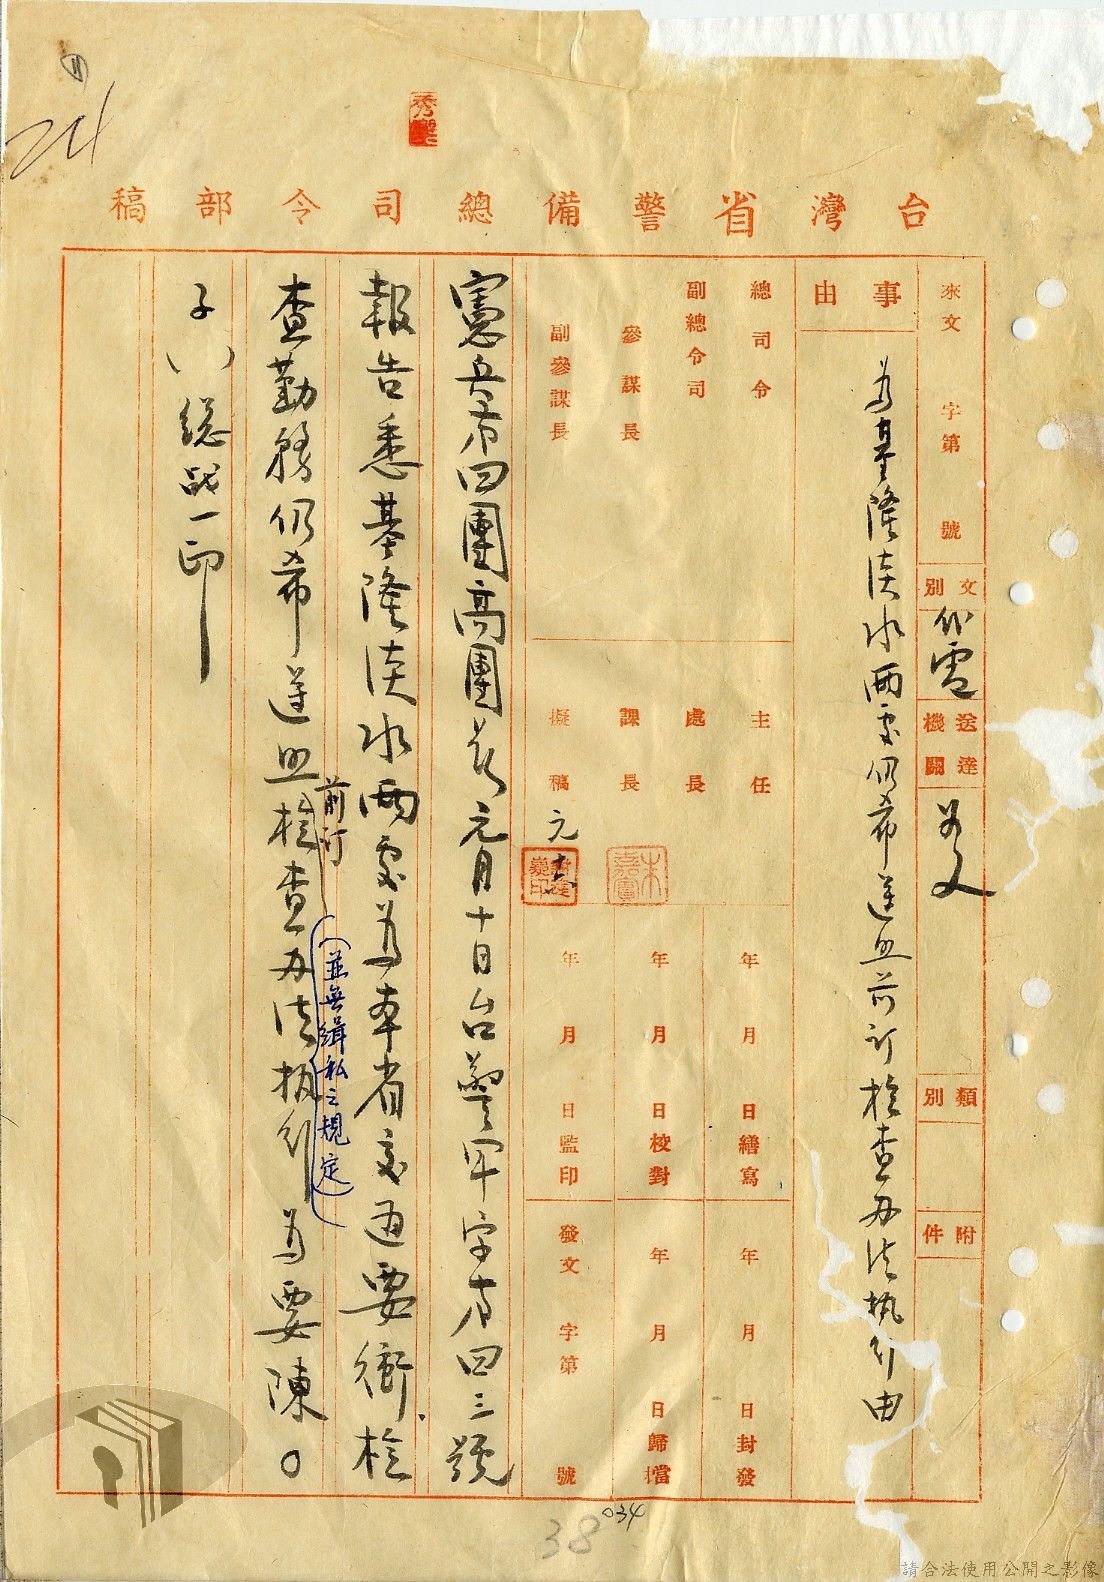 台灣省警備總司令部稿
來文 字第 號
文別 代電
送達機關
類別
附件
事由
為基隆淡水兩處仍希遵照前訂檢查办法执行由
總司令
副總司令
參謀長
副參謀長
主任
處長
課長
擬稿 元
年月日繕寫
年月日校對
年月日監印
年月日封發
年月日歸檔
發文 字第 號
憲兵第四團高團長元月十日台警軍字第四三號
報告悉基隆淡水兩處為本省交通要衝檢
查勤務仍希遵照前訂檢查办法执行(並無緝私之規定)為要陳〇
子()總戰一印
24
38
034
請合法使用公開之影像